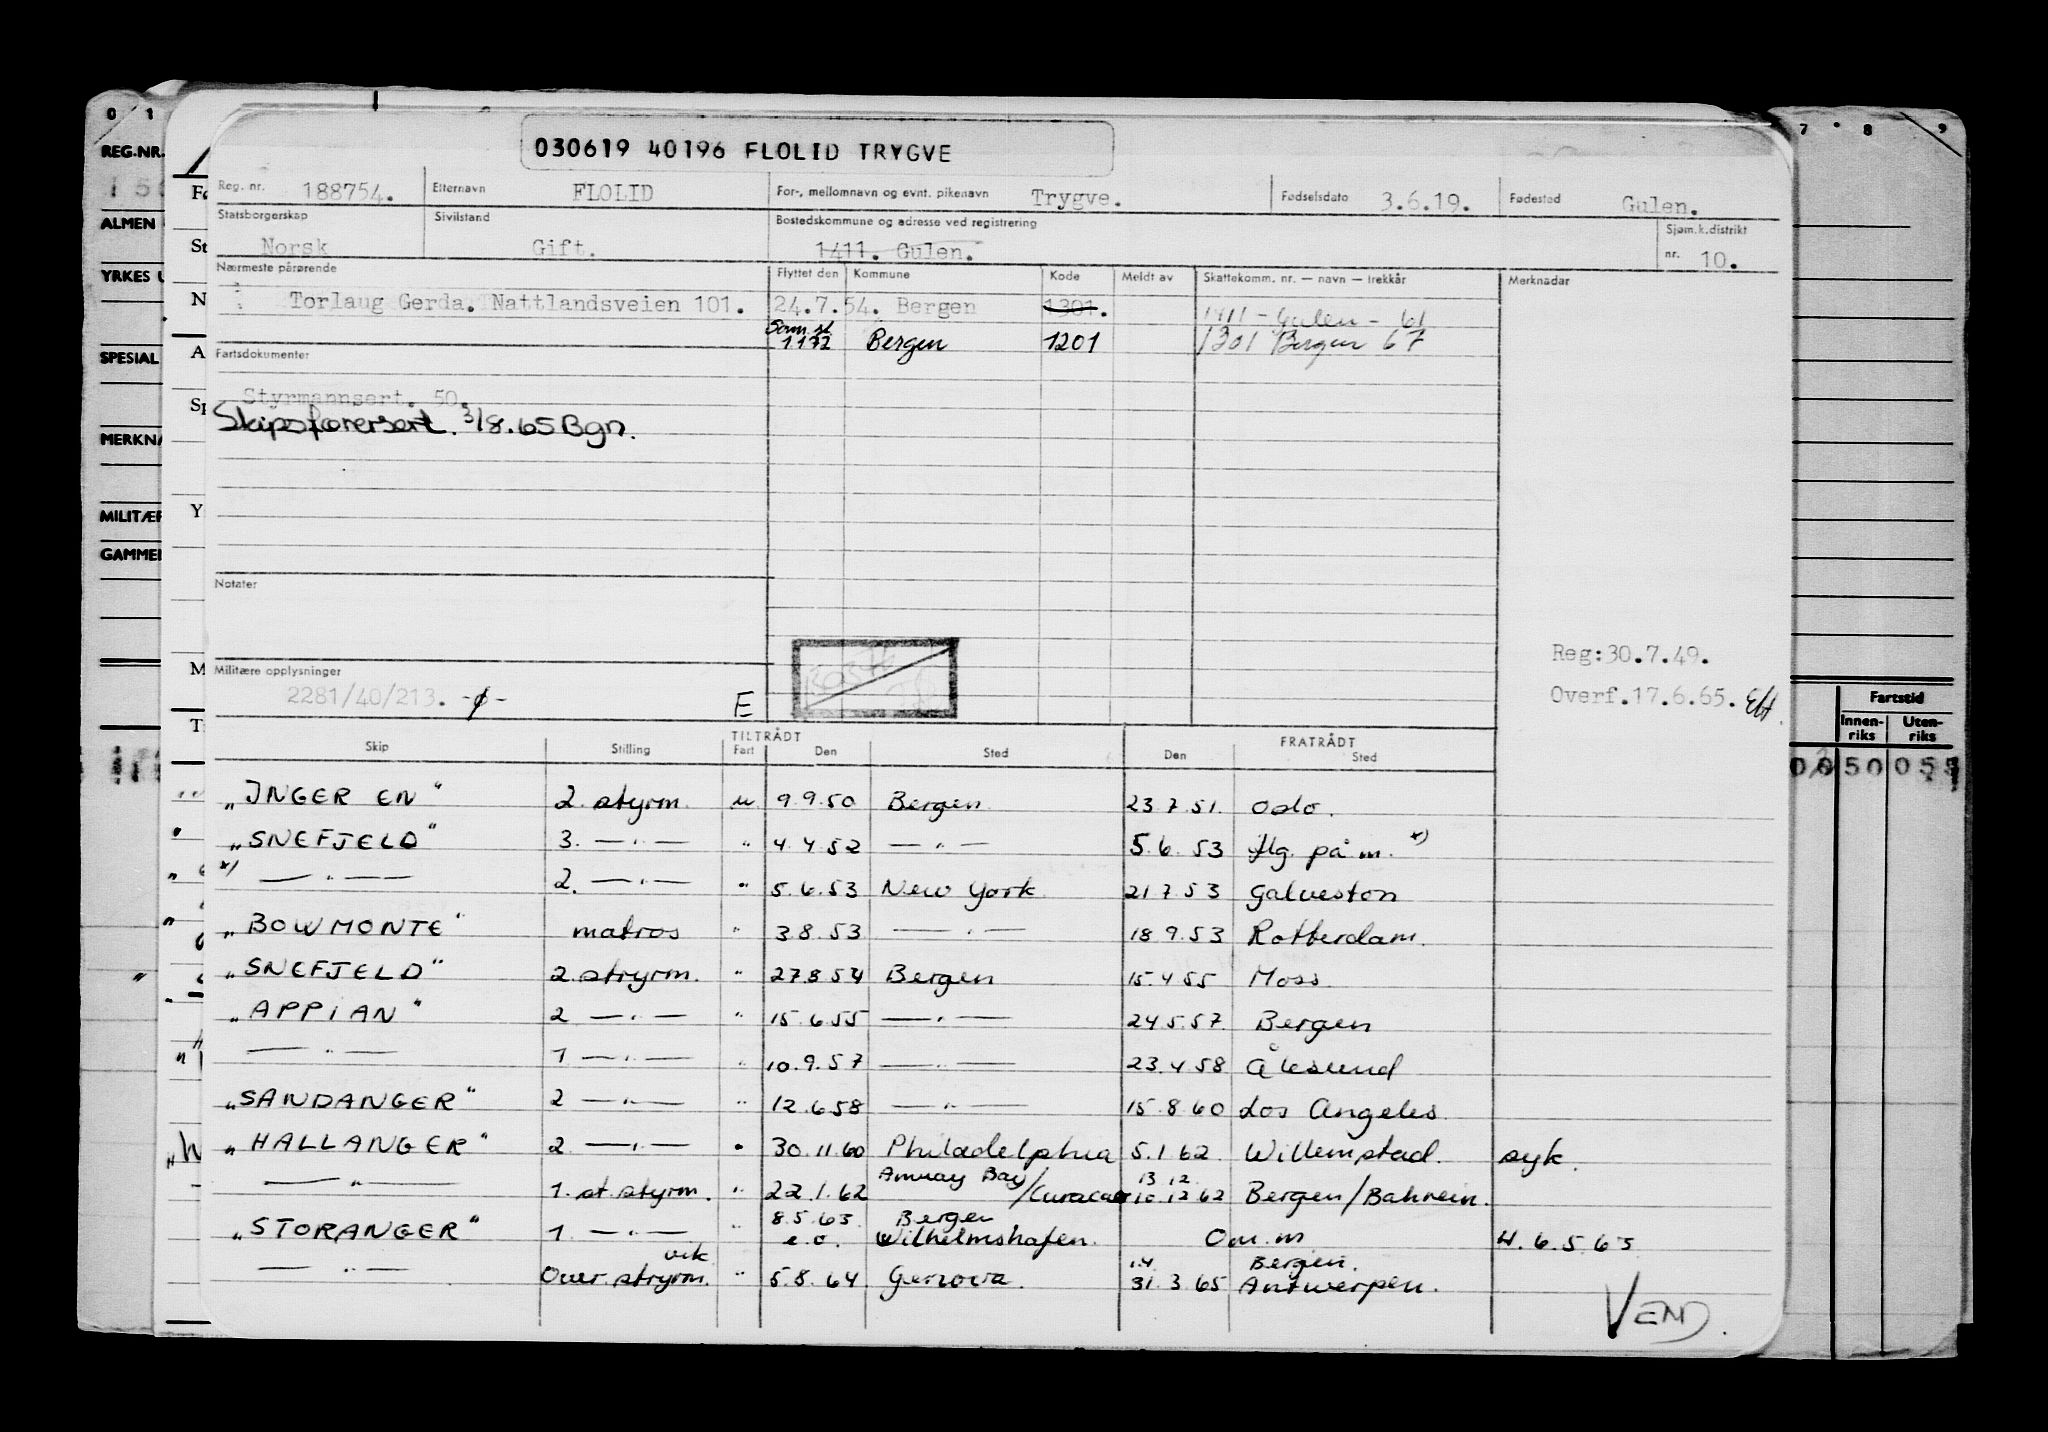 030619 40196 FLOLID TRYGVE
Reg. nr. 188754. Etternavn FLOLID For-, mellomnavn og evnt. pikenavn Trygve. Fødselsdato 3.6.19. Fødested Gulen.
Statsborgerskap Norsk Sivilstand Gift. Bostedskommune og adresse ved registrering 1411. Gulen. Sjøm.k.distrikt nr. 10.
Nærmeste pårørende Flyttet den Kommune Kode Meldt av Skattekomm. nr. — navn — trekkår Merknader
Torlaug Gerda. Nattlandsveien 101. 24.7.54. Bergen 1301. 1411 - Gulen - 61
1172 Bergen 1201 1301 Bergen 67
Fartsdokumenter
Styrmannsert. 50.
Skipsførersert. 3/8.65 Bgn.
Notater
Reg:30.7.49.
Militære opplysninger
2281/40/213. -ø- E Overf.17.6.65.
TILTRÅDT FRATRÅDT
Skip Stilling Fart Den Sted Den Sted
„INGER EN" 2. styrm. u 9.9.50 Bergen 23.7.51. Oslo.
„SNEFJELD" 3. — „ — " 4.4.52 — „ — 5.6.53 flg. på m. x)
x) — „ — 2. — „ — " 5.6.53 New York 21.7.53 Galveston
„BOWMONTE" matros " 3.8.53 — „ — 18.9.53 Rotterdam.
„SNEFJELD" 2. stryrm. " 27.8.54 Bergen 15.4.55 Moss.
„APPIAN" 2 — „ — " 15.6.55 — „ — 24.5.57. Bergen
— „ — 1 — „ — " 10.9.57 — „ — 23.4.58 Ålesund
„SANDANGER" 2 — „ — " 12.6.58 — „ — 15.8.60 Los Angeles.
„HALLANGER" 2 — „ — " 30.11.60 Philadelphia 5.1.62. Willemstad. syk.
— „ — 1. st. styrm. " 22.1.62 Amuay Bay/Curacao 13.12 10.12.62 Bergen/Bahrein.
„STORANGER" 1. — „ — " 8.5.63. e.o. Bergen Wilhelmshafen. Om. m H. 6.5.63
— „ — vik Over. stryrm. " 5.8.64 Genova. 1.4 31.3.65 Bergen. Antwerpen.
VEND.
0 1
REG.NR.
ALMEN
YRKES
SPESIAL
MERKNA
MILITÆR
GAMMEL
7 8 9
Fartstid
Innen-
riks
Uten-
riks